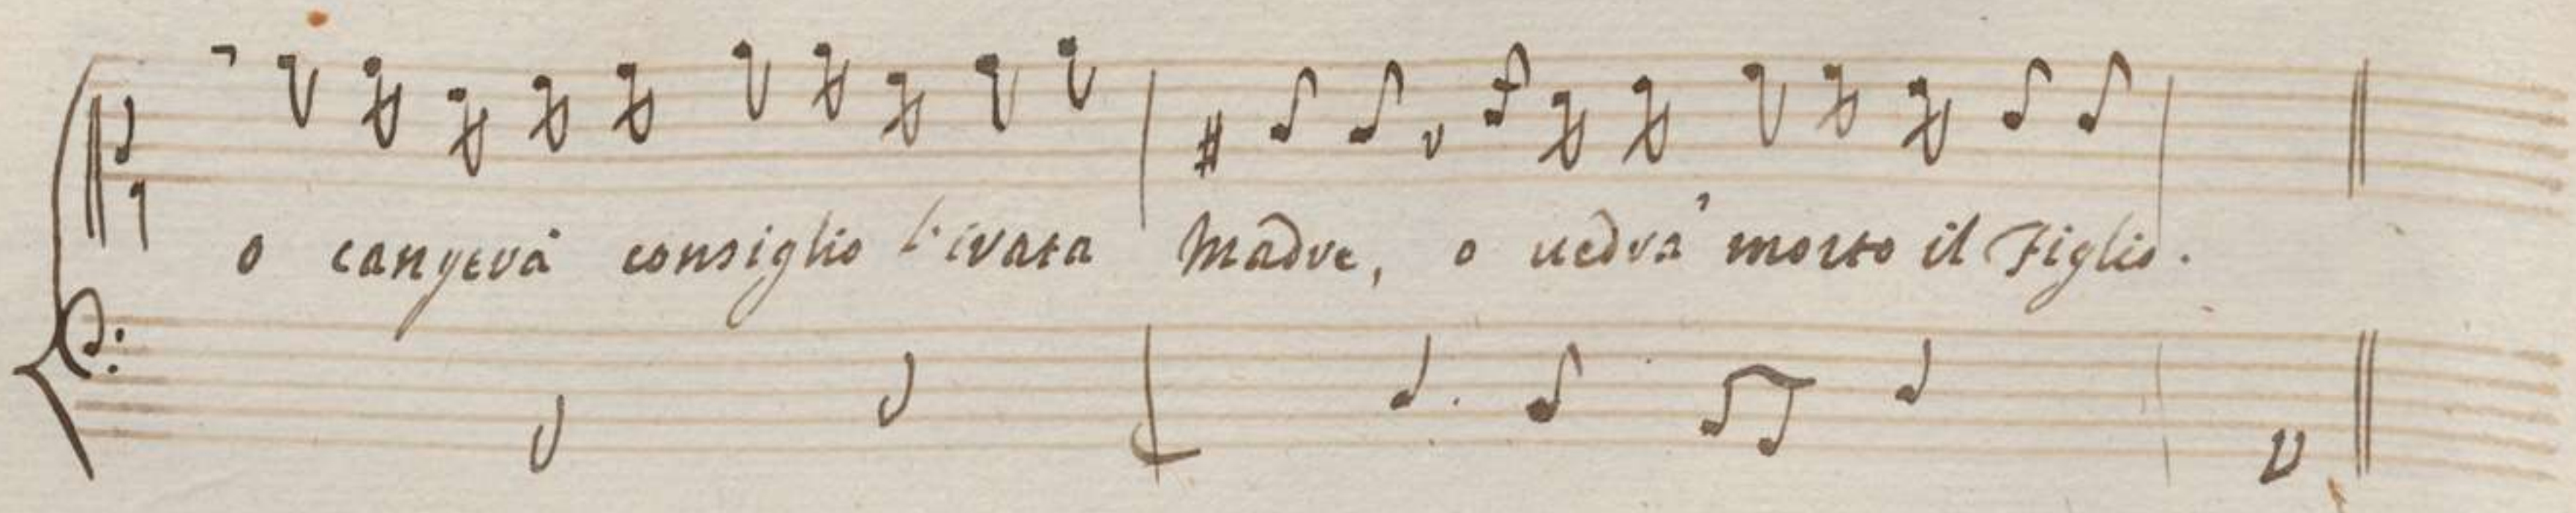 o cangerà consiglio l'irata Madre, o uedrà morto il Figlio.